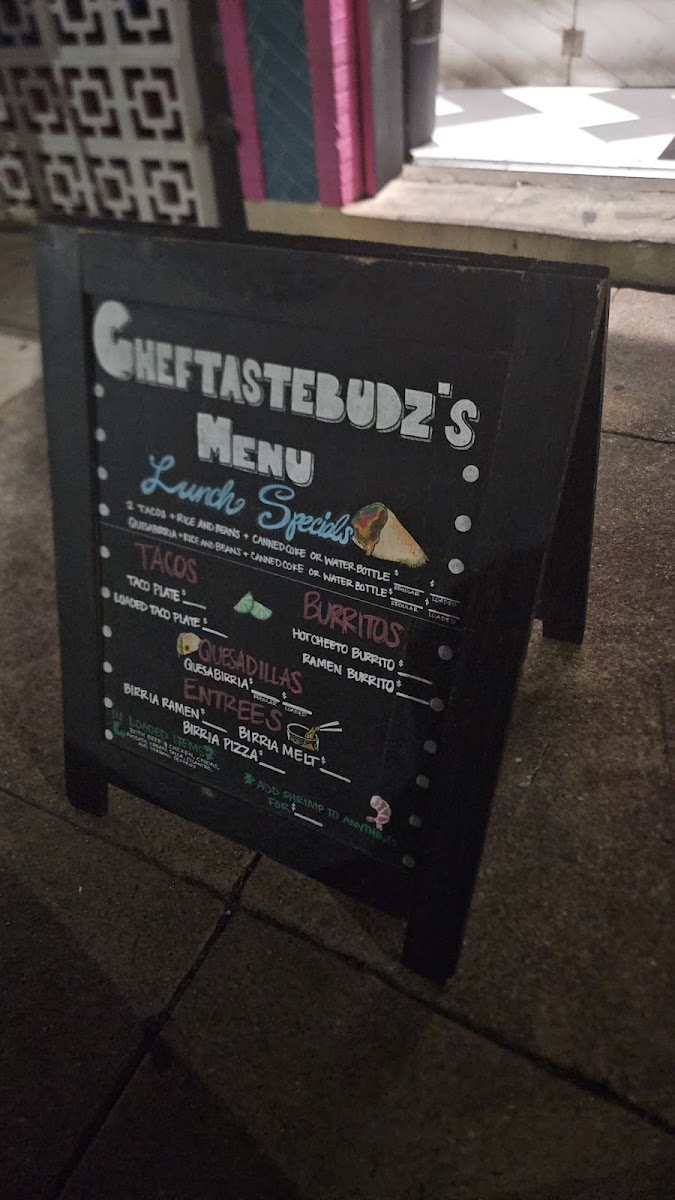 CHEFTASTEBUDZ'S
MENU
Lunch Specials
2 TACOS + RICE AND BEANS + CANNED COKE OR WATER BOTTLE $ $
REGULAR LOADED
QUESABIRRIA + RICE AND BEANS + CANNED COKE OR WATER BOTTLE $ $
REGULAR LOADED
TACOS
TACO PLATE $
LOADED TACO PLATE $
BURRITOS
HOT CHEETO BURRITO $
RAMEN BURRITO $
QUESADILLAS
QUESABIRRIA $ $
REGULAR LOADED
ENTREES
BIRRIA RAMEN $
BIRRIA MELT $
BIRRIA PIZZA $
LOADED ITEMS
BOTH BEEF & CHICKEN,
CREAM, SALSA, CILANTRO,
* ADD SHRIMP TO ANYTHING
FOR $